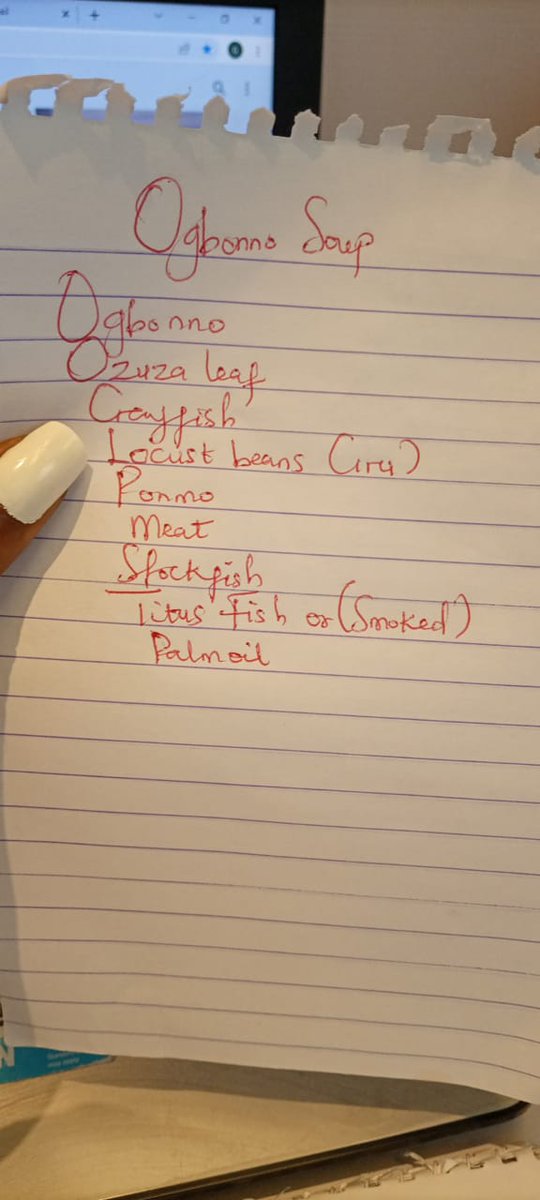 Ogbonno Soup
Ogbonno
Ozuza leaf
Crayfish
Locust beans (iru)
Ponmo
Meat
Stockfish
Titus fish or (Smoked)
Palmoil